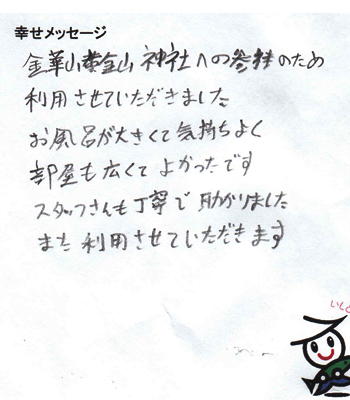 幸せメッセージ
金華山黄金山神社への参拝のため
利用させていただきました
お風呂が大きくて気持ちよく
部屋も広くてよかったです
スタッフさんも丁寧で助かりました
また利用させていただきます